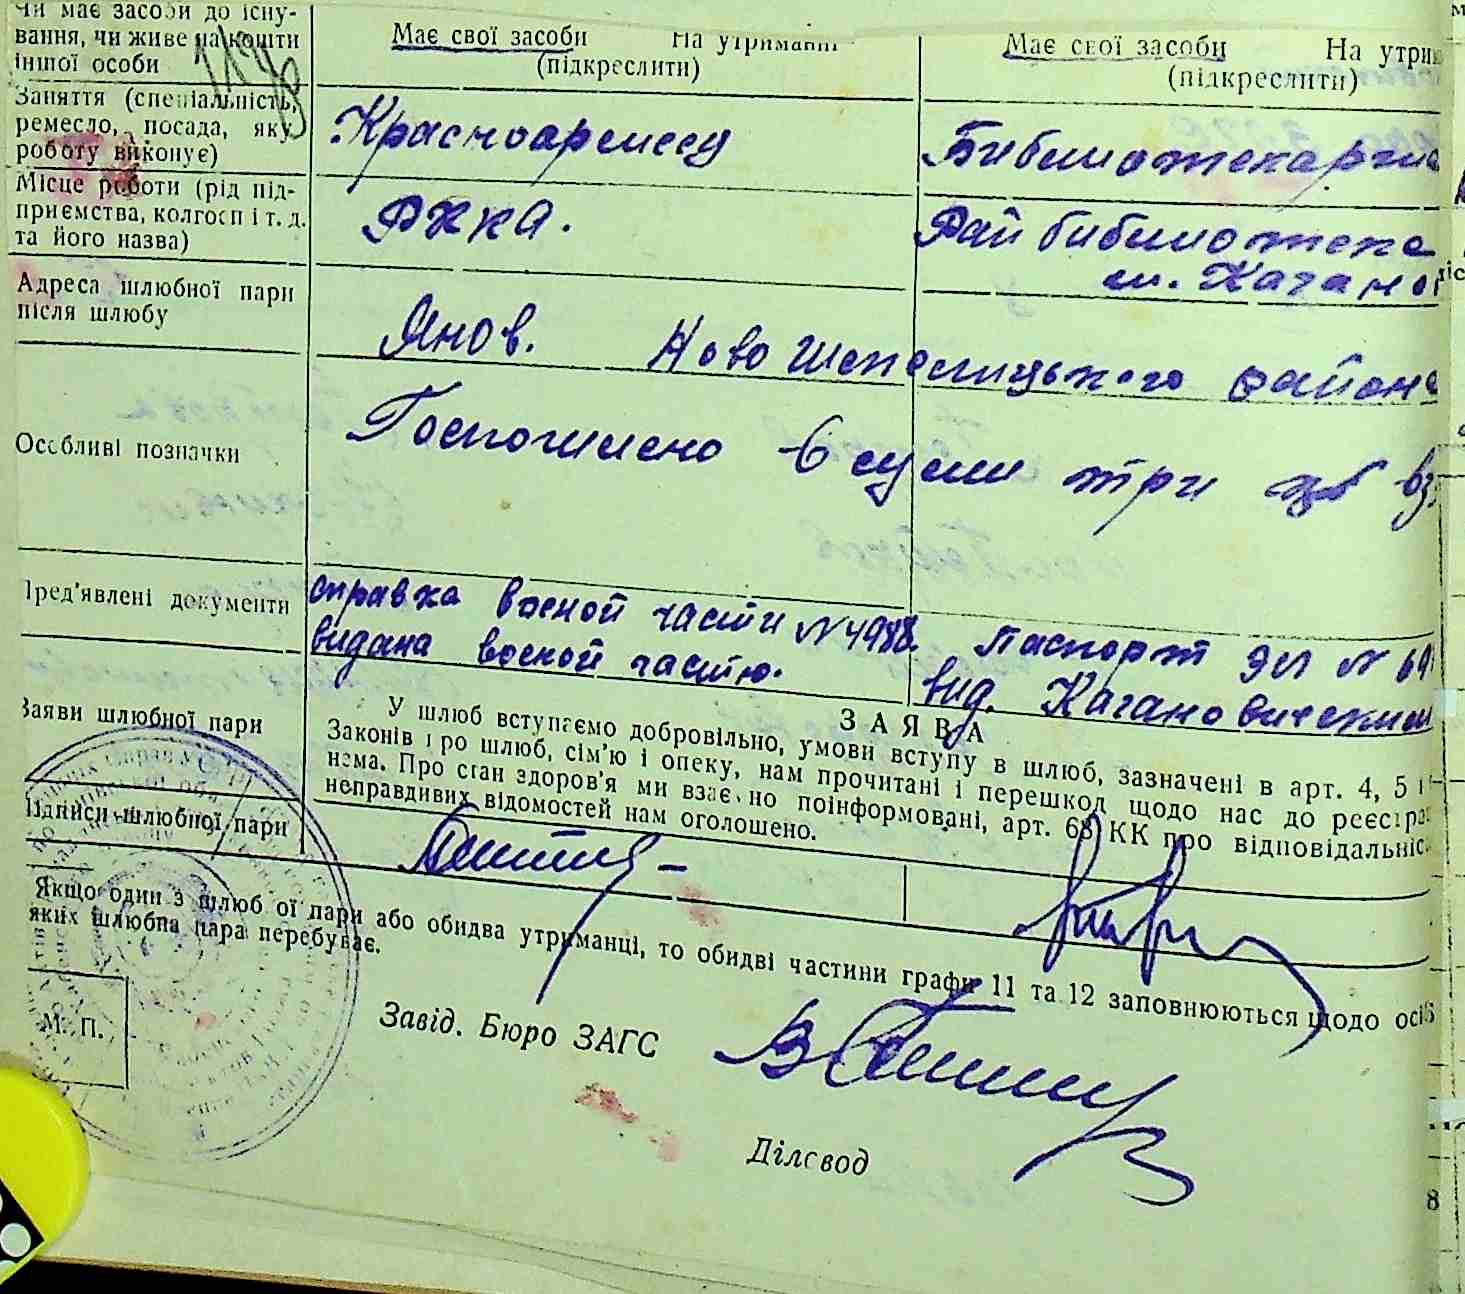 Чи має засоби до існу-
вання, чи живе на кошти
іншої особи
Має свої засоби На утриманні
(підкреслити)
Має свої засоби На утрим
(підкреслити)
Заняття (спеціальність,
ремесло, посада, яку
роботу виконує)
Красноармеец
Библиотекарша
Місце роботи (рід під-
приємства, колгосп і т. д.
та його назва)
РККА.
Рай библиотека
им. Кагано
Адреса шлюбної пари
після шлюбу
Янов. Ново Шепелицького района
Особливі позначки
Госпошлено в сумі три
Пред'явлені документи
справка воєной части №4988
видана воєной частю.
Паспорт № 69
вид. Кагановичским
Заяви шлюбної пари
ЗАЯВА
У шлюб вступаємо добровільно, умови вступу в шлюб, зазначені в арт. 4, 5 і
Законів про шлюб, сім'ю і опеку, нам прочитані і перешкод щодо нас до реєстра
нема. Про стан здоров'я ми взаємно поінформовані, арт. 68 КК про відповідальніс
неправдивих відомостей нам оголошено.
Підписи шлюбної пари
Якщо один з шлюбної пари або обидва утриманці, то обидві частини графи 11 та 12 заповнюються щодо осіб
яких шлюбна пара перебуває.
М. П.
Завід. Бюро ЗАГС
Діловод
8